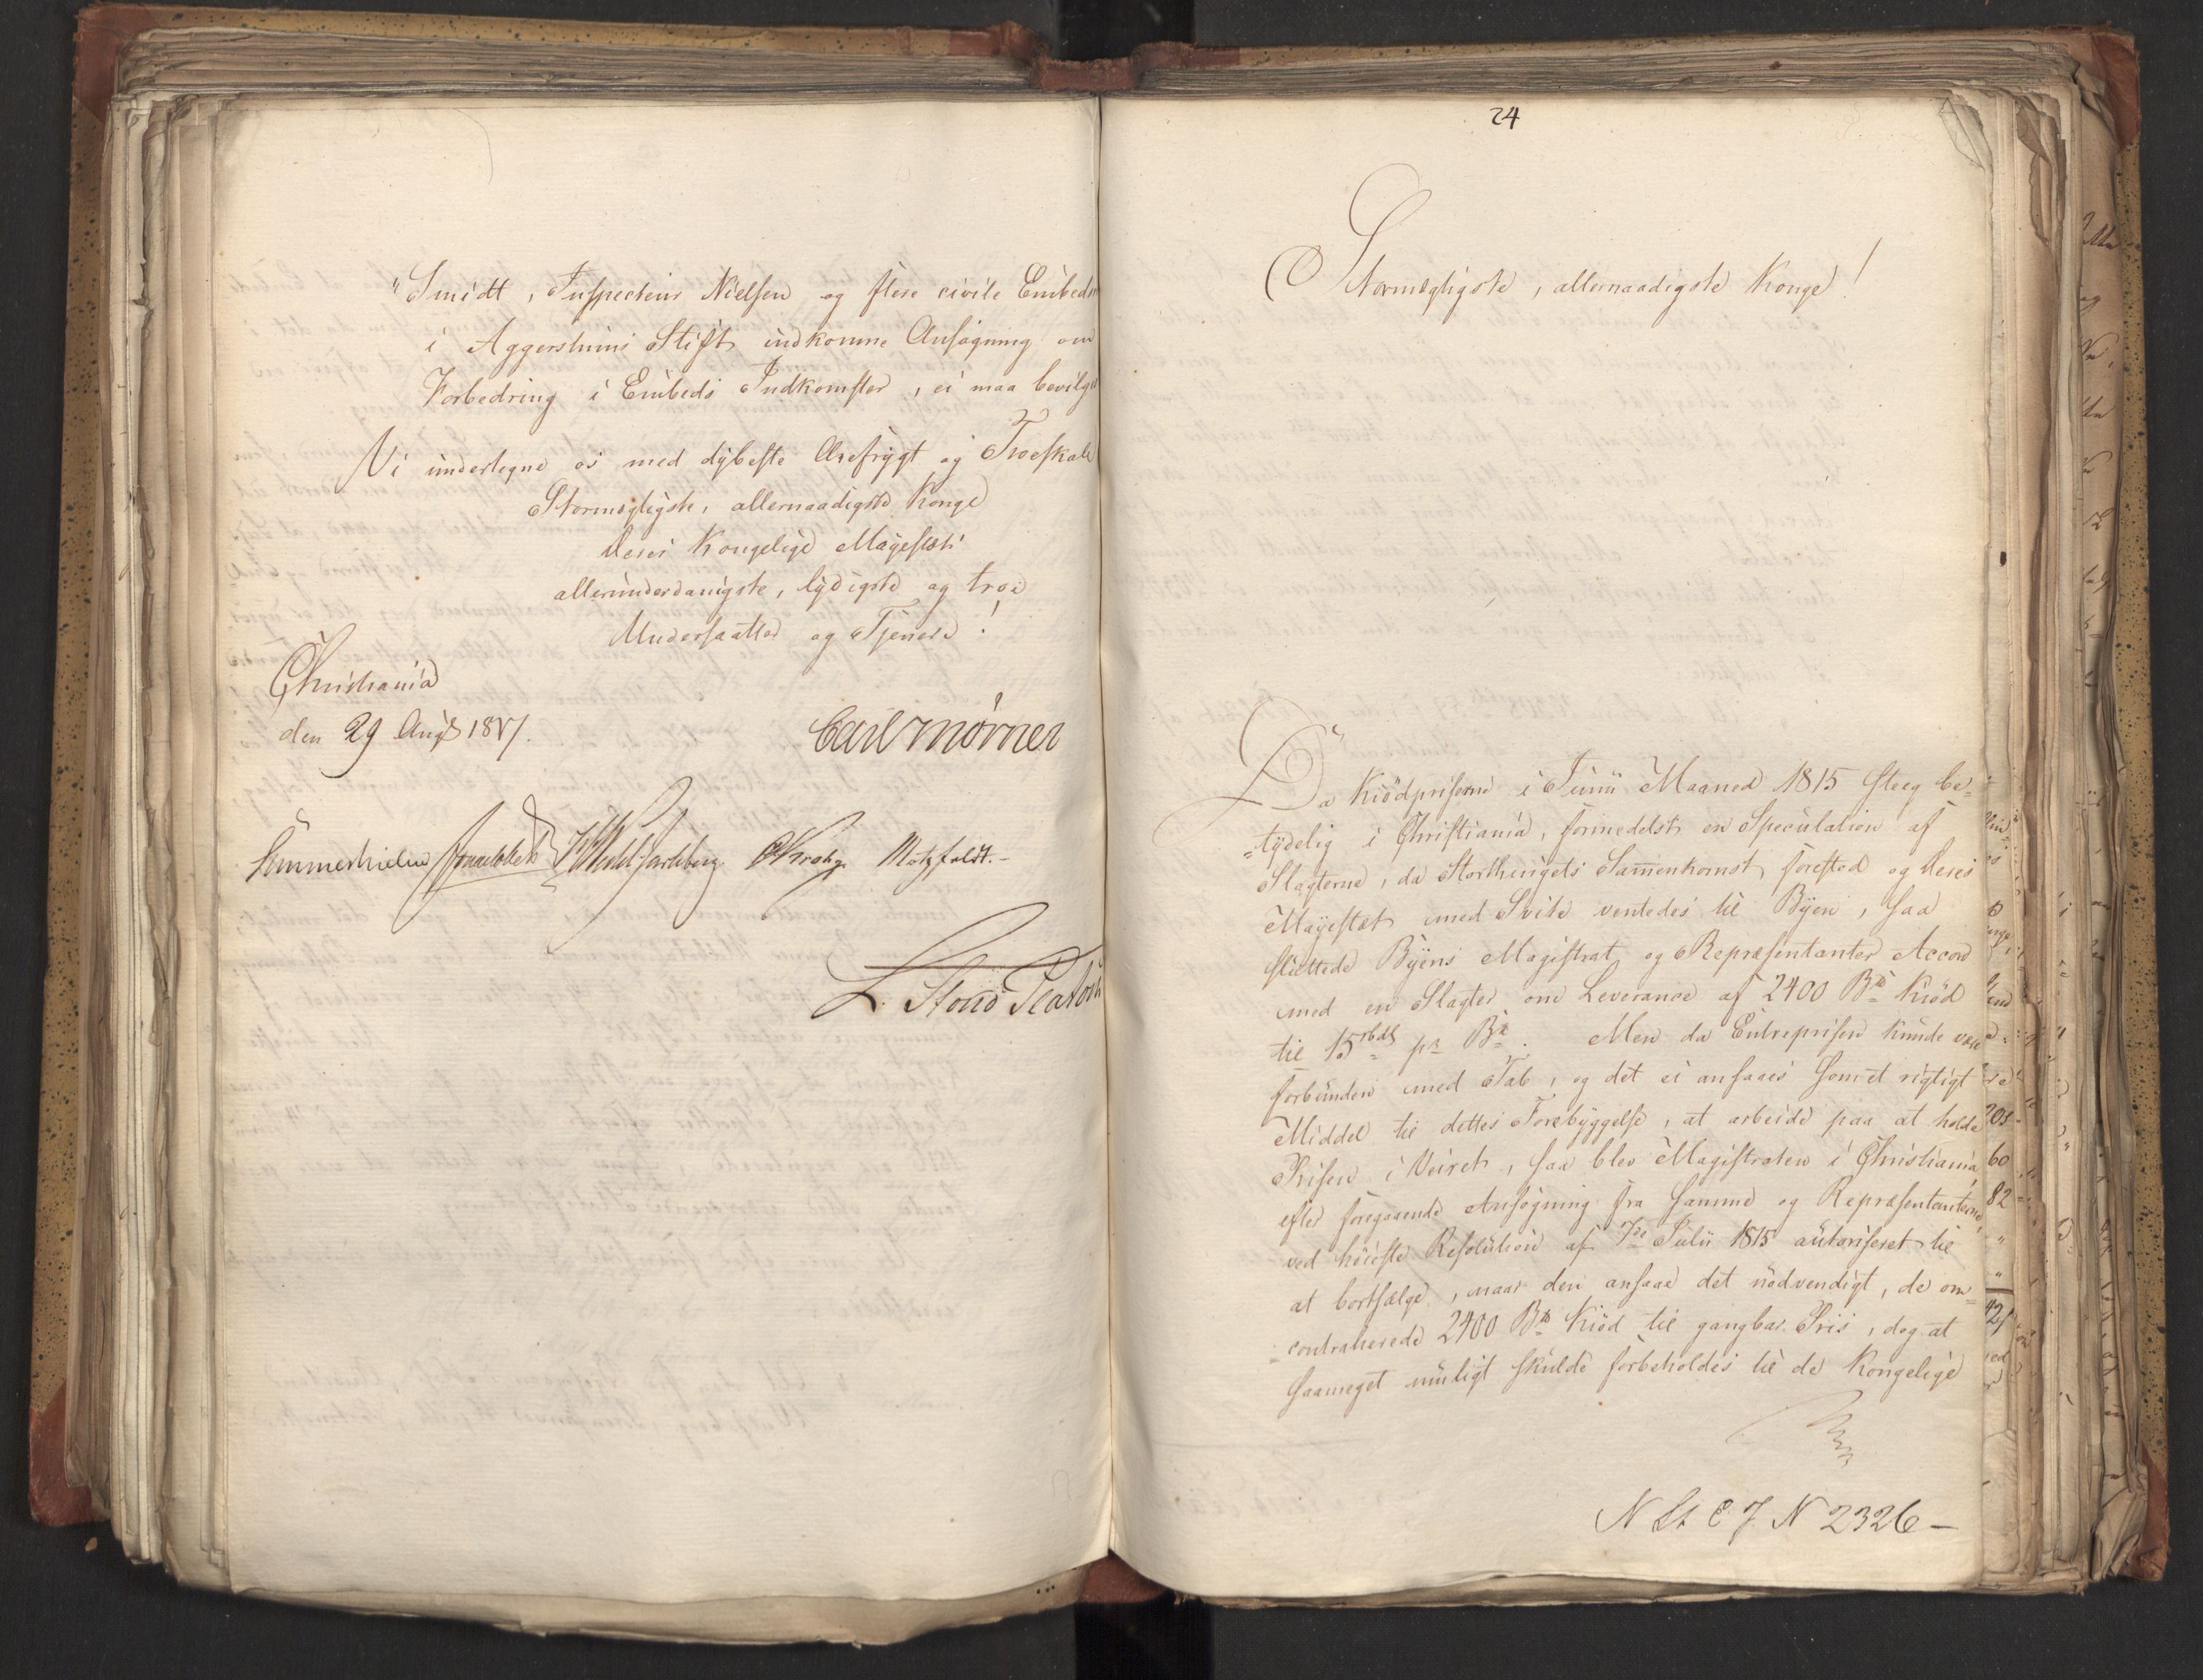 "Smidt, Inspecteur Nielsen og flere civile Embedsm
i Aggershuus Stift indkomne Ansøgning om
Forbedring i Embeds Indkomster, ei maa bevilges
Vi undertegne os med dybeste Ærefrygt og Troeskab
Stormægtigste, allernaadigste Konge
Deres Kongelige Mayestæts
allerunderdanigste, lydigste og troe
Undersaatter og Tjenere!
Christiania
den 29 Augs 1817.
Carl Mörner
Sommerhielm Wedel Jarlsberg. Krohg. Motzfeldt.-
L. Stoud Platou
24
Stormægtigste, allernaadigste Konge!
Da Kiödpriserne i Junii Maaned 1815 steeg be-
-tydelig i Christiania, formedelst en Speculation af
Slagterne, da Storthingets Sam̄enkomst forestod og Deres
Mayestæt med Svite ventedes til Byen, saa
sluttede Byens Magistrat og Repræsentanter Accord
med en Slagter om Leverance af 2400 B℔ Kiöd
til 15 rbdl pr B℔. Men da Entreprisen kunde være
forbunden med Tab, og det ei ansaaes som et rigtigt
Middel til dettes Forebyggelse, at arbeide paa at holde
Prisen i Veiret, saa blev Magistraten i Christiania
efter foregaaende Ansøgning fra samme og Repræsentanterne,
ved höieste Resolution af 7de Julii 1815 autoriseret til
at bortsælge, naar den ansaae det nödvendigt, de om-
-contraherede 2400 B℔ Kiöd til gangbar Priis, dog at
saameget muligt skulde forbeholdes til de Kongelige
N St C J N 2326-